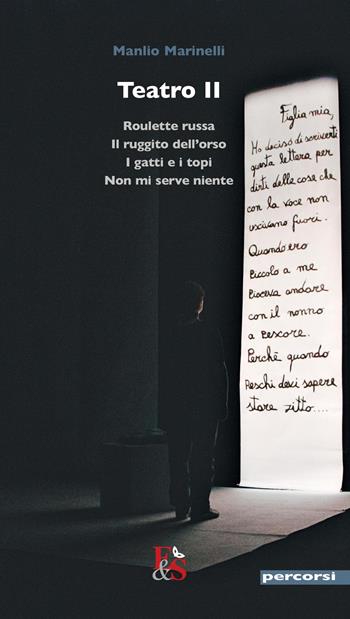 Manlio Marinelli
Teatro II
Roulette russa
Il ruggito dell'orso
I gatti e i topi
Non mi serve niente
Figlia mia,
Ho deciso di scriverti
questa lettera per
dirti delle cose che
con la voce non
uscivano fuori.
Quando ero
piccolo a me
piaceva andare
con il nonno
a pescare.
Perchè quando
peschi devi sapere
stare zitto....
E&S
percorsi